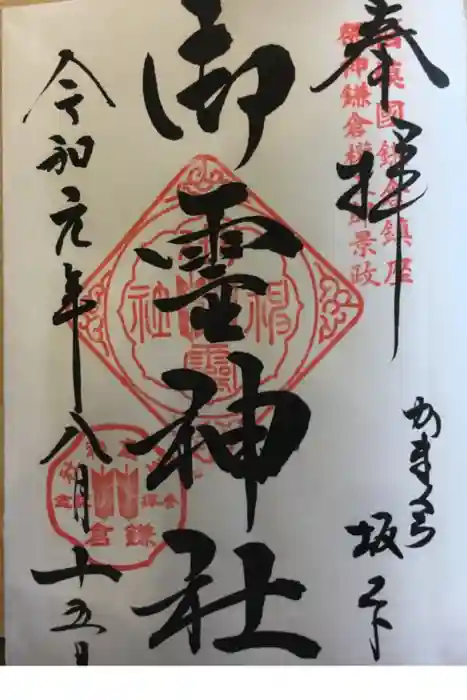 奉拝
相模國鎌倉鎮座
祭神鎌倉権五郎景政
かまくら
坂ノ下
御霊神社
令和元年八月十五日
鎌倉